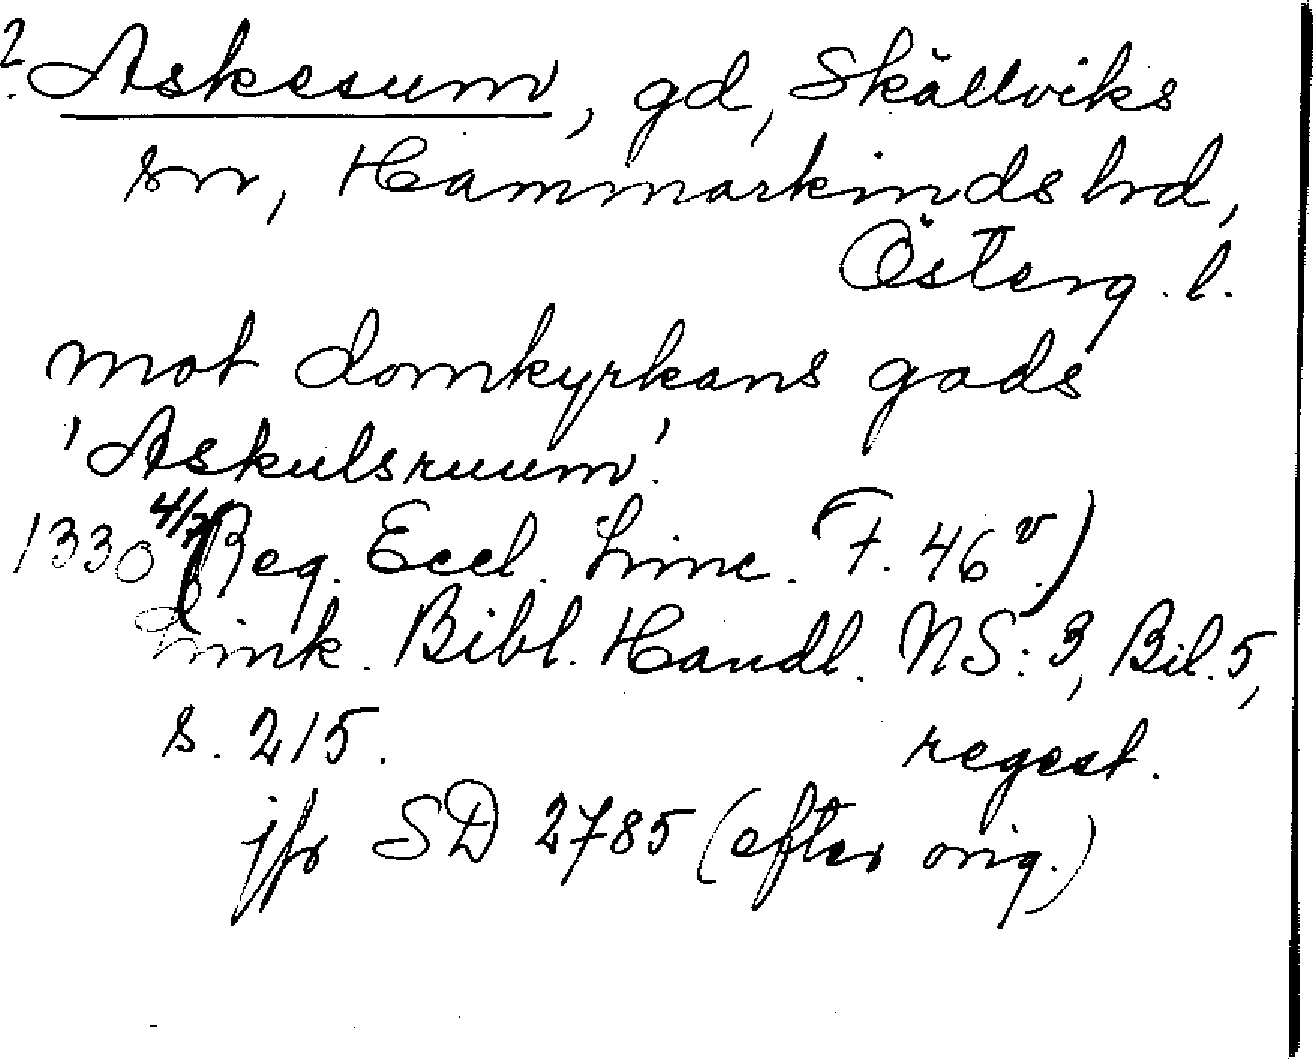 ? Askesum, gd, Skällviks
sn, Hammarkinds hd,
Österg. l.
mot domkyrkans gods
'Askulsruum'.
1330 4/7 (Reg. Eccl. Linc. F. 46 v.)
Link. Bibl. Handl. NS: 3, Bil. 5,
s. 215. regest.
jfr SD 2785 (efter orig.)